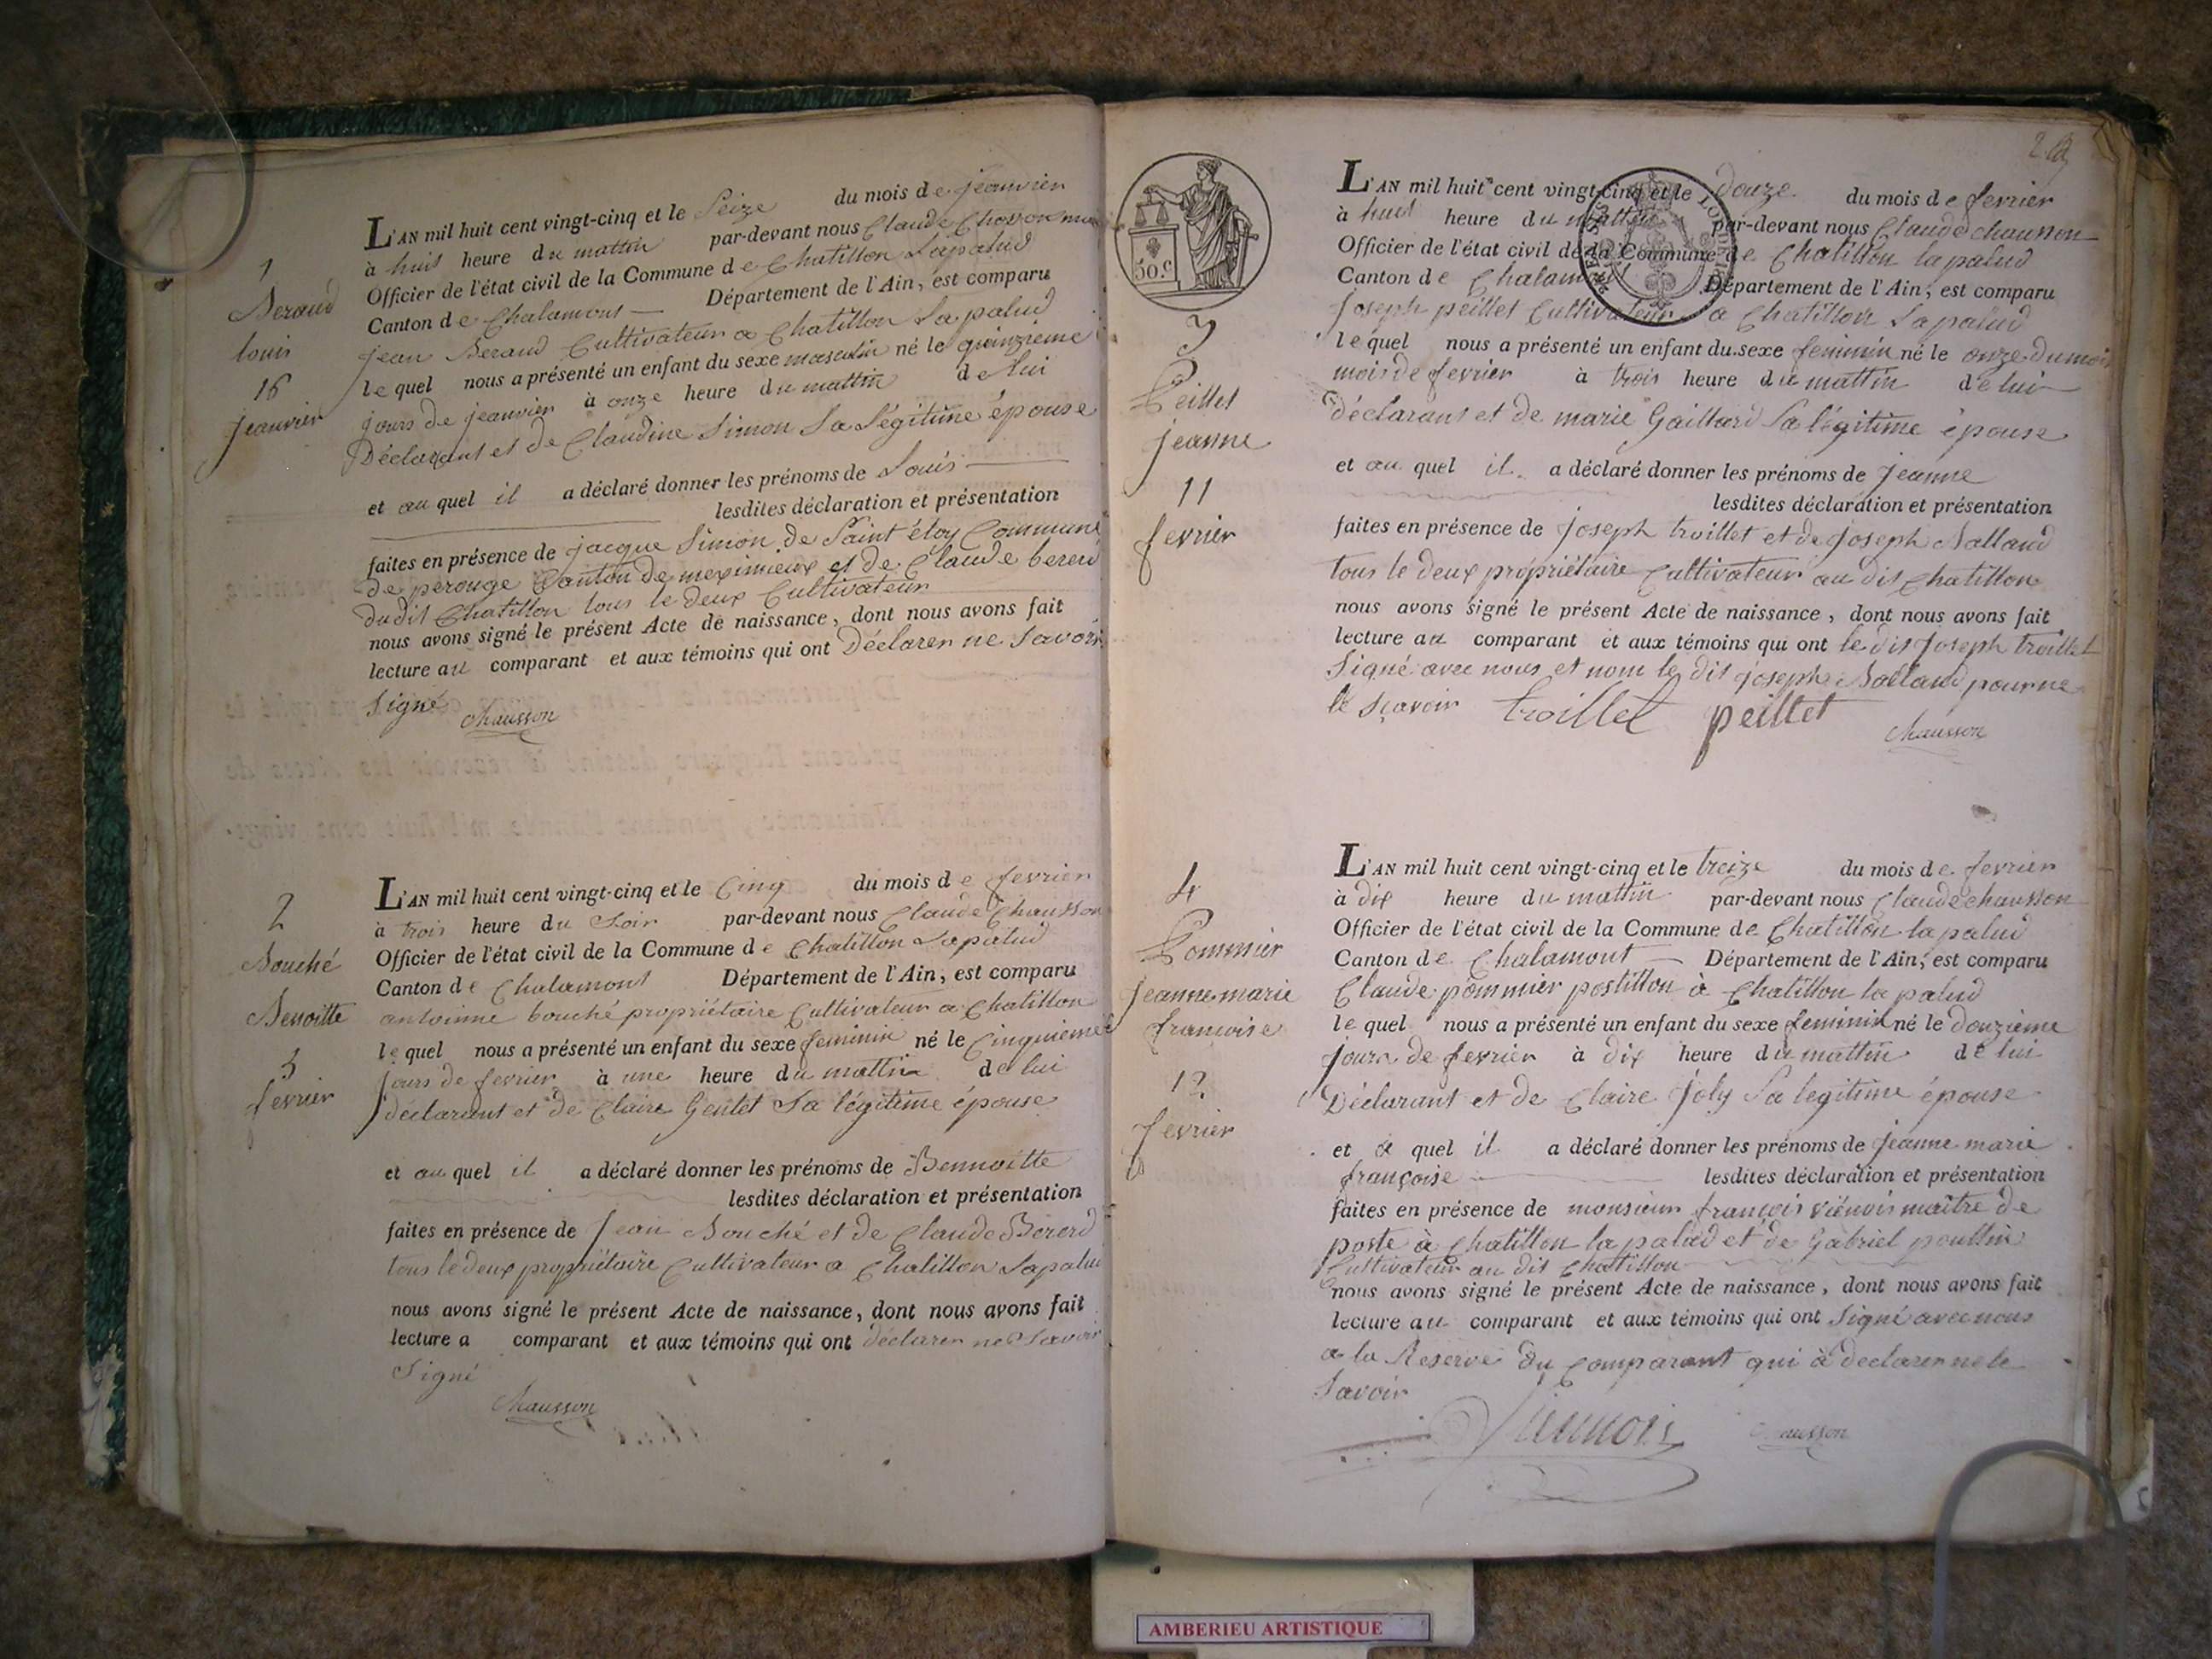 1
Beraud
louis
16
jeanvier
L'AN mil huit cent vingt-cinq et le Seize du mois de jeanvier
à huit heure du mattin par-devant nous Claude Chosson
Officier de l'état civil de la Commune de Chatillon Lapalud
Canton de Chalamont Département de l'Ain, est comparu
jean Beraud Cultivateur a Chatillon Lapalud
lequel nous a présenté un enfant du sexe masculin né le quinzieme
jours de jeanvier à onze heure du mattin de lui
Déclarant et de Claudine Simon Sa Légitime épouse
et au quel il a déclaré donner les prénoms de Louis
lesdites déclaration et présentation
faites en présence de jacque Simon de Saint éloy Commune
de perouge Canton de meximieux et de Claude bererd
dudit Chatillon tous le deux Cultivateur
nous avons signé le présent Acte de naissance, dont nous avons fait
lecture au comparant et aux témoins qui ont Déclarer ne Savoir
Signé
Chausson
2
Bouché
Benoitte
5
fevrier
L'AN mil huit cent vingt-cinq et le Cinq du mois de fevrier
à trois heure du Soir par-devant nous Claude Chausson
Officier de l'état civil de la Commune de Chatillon Lapalud
Canton de Chalamont Département de l'Ain, est comparu
antoinne bouché propriétaire Cultivateur a Chatillon
lequel nous a présenté un enfant du sexe feminin né le Cinquieme
jours de fevrier à une heure du mattin de lui
déclarant et de Claire Gentet Sa légitime épouse
et au quel il a déclaré donner les prénoms de Bennoitte
lesdites déclaration et présentation
faites en présence de Jean Bouché et de Claude Bererd
tous le deux propriétaire Cultivateur a Chatillon Lapalud
nous avons signé le présent Acte de naissance, dont nous avons fait
lecture a comparant et aux témoins qui ont déclarer ne Savoir
Signé
Chausson
50.c
3
Peillet
jeanne
11
fevrier
L'AN mil huit cent vingt-cinq et le douze du mois de fevrier
à huit heure du mattin par-devant nous Claude chausson
Officier de l'état civil de la Commune de Chatillon lapalud
Canton de Chalamont Département de l'Ain, est comparu
Joseph peillet Cultivateur a Chatillon Lapalud
lequel nous a présenté un enfant du sexe feminin né le onze du mois
mois de fevrier à trois heure du mattin de lui
déclarant et de marie Gaillard Sa légitime épouse
et au quel il a déclaré donner les prénoms de jeanne
lesdites déclaration et présentation
faites en présence de joseph troillet et de joseph Balland
tous le deux propriétaire Cultivateur au dit Chatillon
nous avons signé le présent Acte de naissance, dont nous avons fait
lecture au comparant et aux témoins qui ont le dit Joseph troillet
Signé avec nous et nom le dit joseph Balland pour ne
le sçavoir troillet peillet
Chausson
4
Pommier
jeanne marie
françoise
12
fevrier
L'AN mil huit cent vingt-cinq et le treize du mois de fevrier
à dix heure du mattin par-devant nous Claude chausson
Officier de l'état civil de la Commune de Chatillon la palud
Canton de Chalamont Département de l'Ain, est comparu
Claude pommier postillon à Chatillon la palud
lequel nous a présenté un enfant du sexe feminin né le douzieme
jours de fevrier à dix heure du mattin de lui
Déclarant et de Claire joly Sa legitime épouse
et a quel il a déclaré donner les prénoms de jeanne marie
françoise lesdites déclaration et présentation
faites en présence de monsieur françois viennois maître de
poste à Chatillon la palud et de Gabriel
Cultivateur au dit Chatillon
nous avons signé le présent Acte de naissance, dont nous avons fait
lecture au comparant et aux témoins qui ont Signé avec nous
a la Reserve du Comparant qui à declarer ne le
Savoir
Viennois Chausson
AMBERIEU ARTISTIQUE